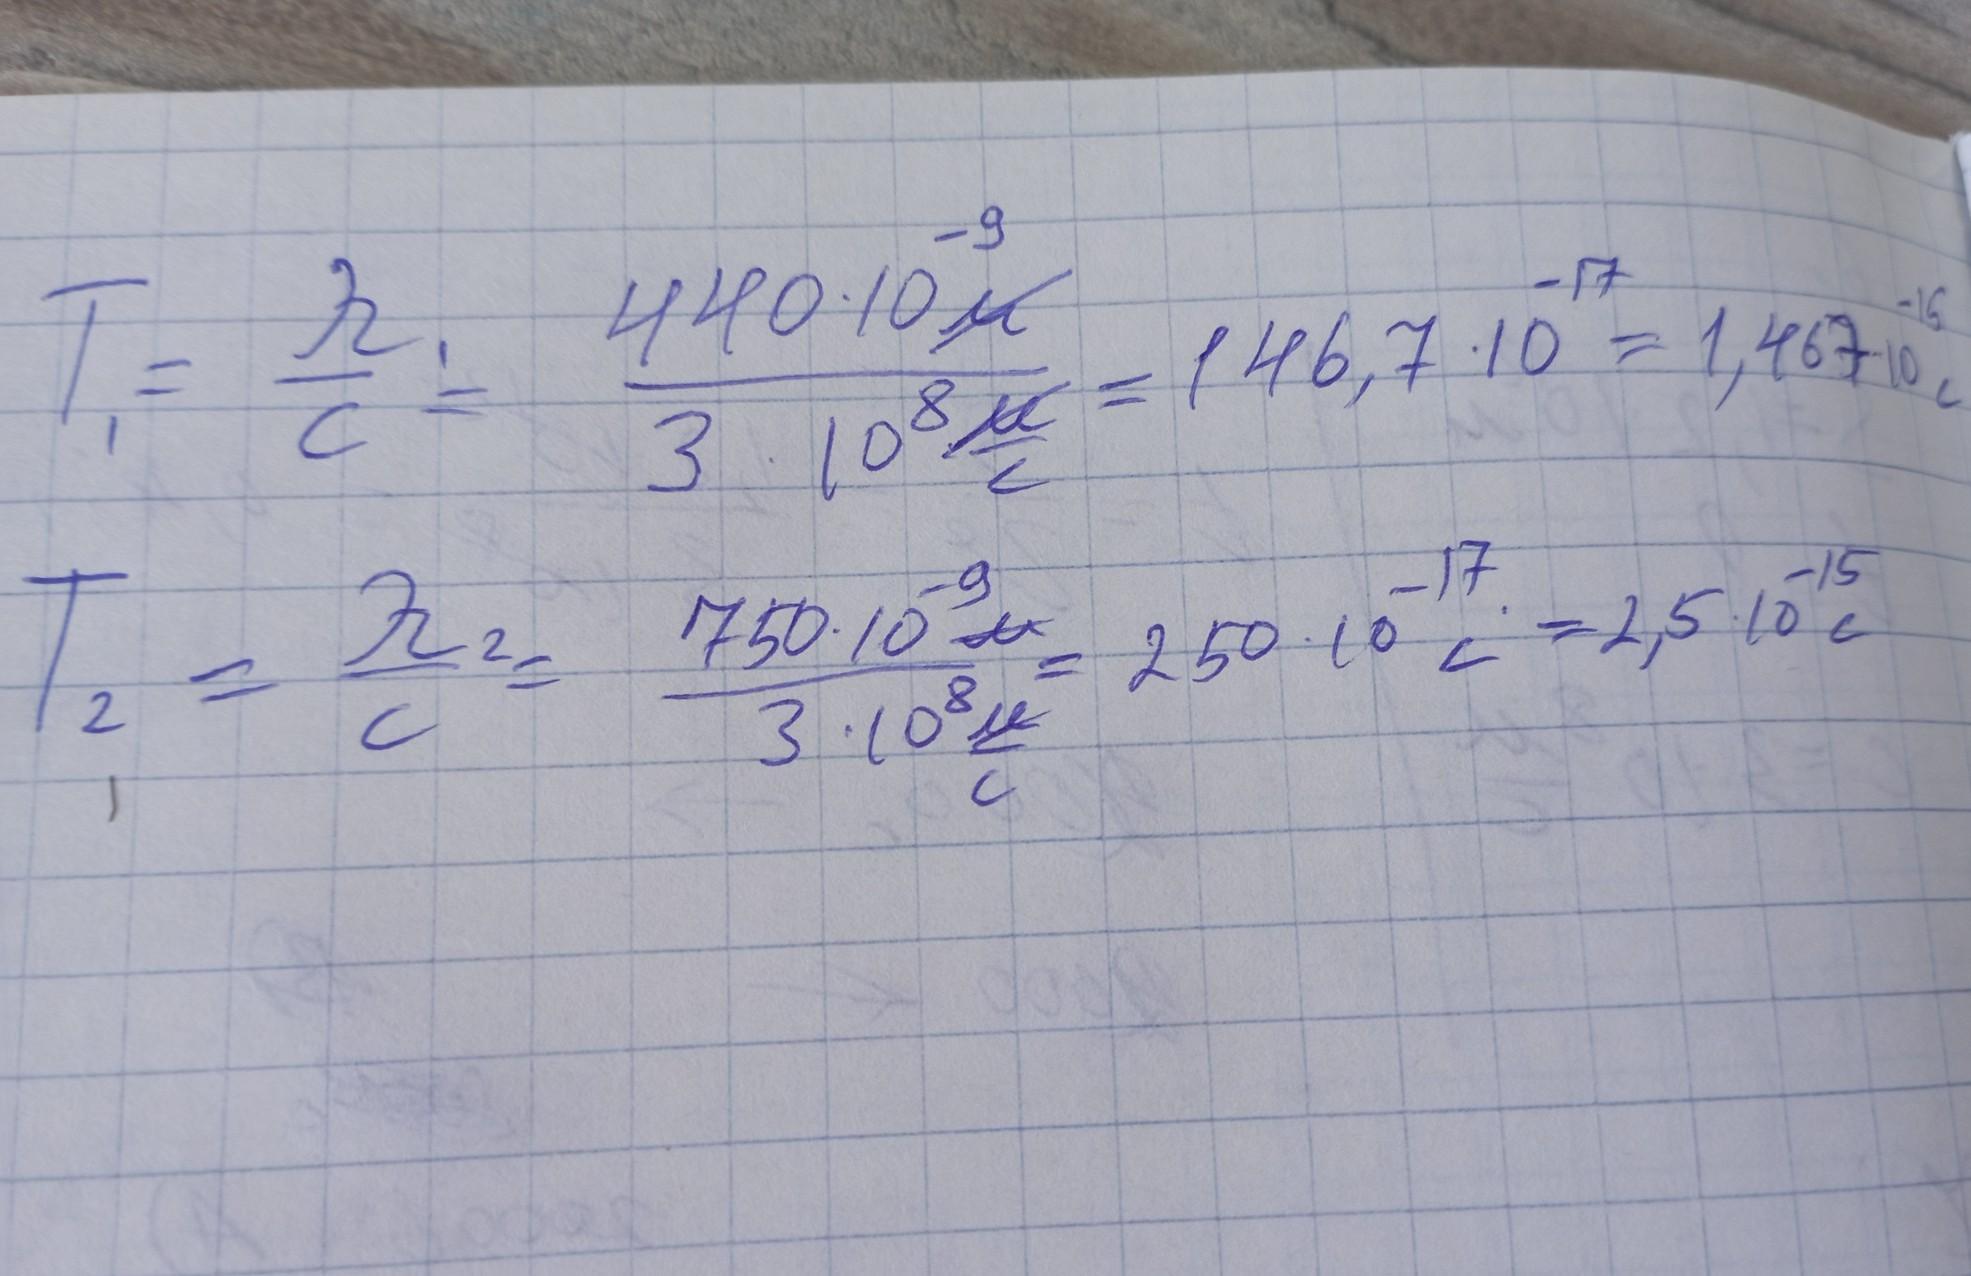 T₁ = λ₁/c = 440·10⁻⁹ м / 3·10⁸ м/с = 146,7·10⁻¹⁷ = 1,467·10⁻¹⁵ с
T₂ = λ₂/c = 750·10⁻⁹ м / 3·10⁸ м/с = 250·10⁻¹⁷ с = 2,5·10⁻¹⁵ с